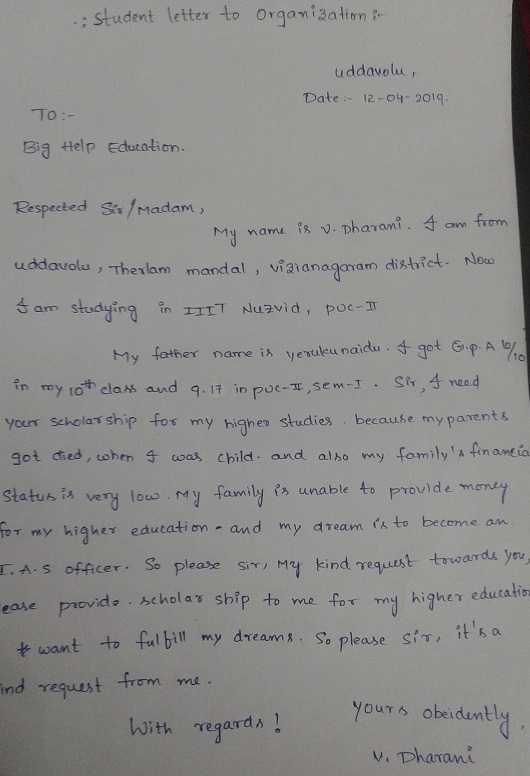 .: Student letter to Organization :-
uddavolu,
Date:- 12-04-2019.
To:-
Big Help Education.
Respected Sir/Madam,
My name is V. Dharani. I am from
uddavolu, Therlam mandal, vizianagaram district. Now
I am studying in IIIT Nuzvid, puc-II
My father name is yerukunaidu. I got G.p.A 10/10
in my 10th class and 9.17 in puc-II, sem-I. Sir, I need
your scholarship for my higher studies. because my parents
got died, when I was child. and also my family's financia
Status is very low. My family is unable to provide money
for my higher education. and my dream is to become an
I.A.S officer. So please sir, My kind request towards you,
ease provide. scholar ship to me for my higher educatio
I want to fulfill my dreams. So please sir, it's a
ind request from me.
With regards!
yours obeidently,
V. Dharani